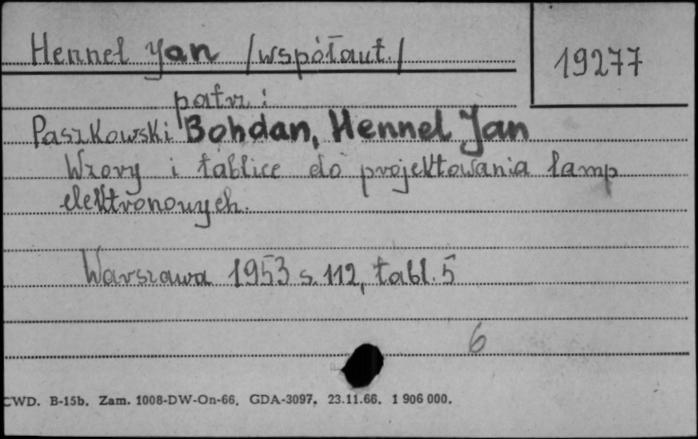 Hennel Jan /współaut./
19277
patrz:
Paszkowski Bohdan, Hennel Jan
Wzory i tablice do projektowania lamp
elektronowych.
Warszawa 1953 s. 112, tabl. 5
6
CWD. B-15b. Zam. 1008-DW-On-66. GDA-3097. 23.11.66. 1 906 000.